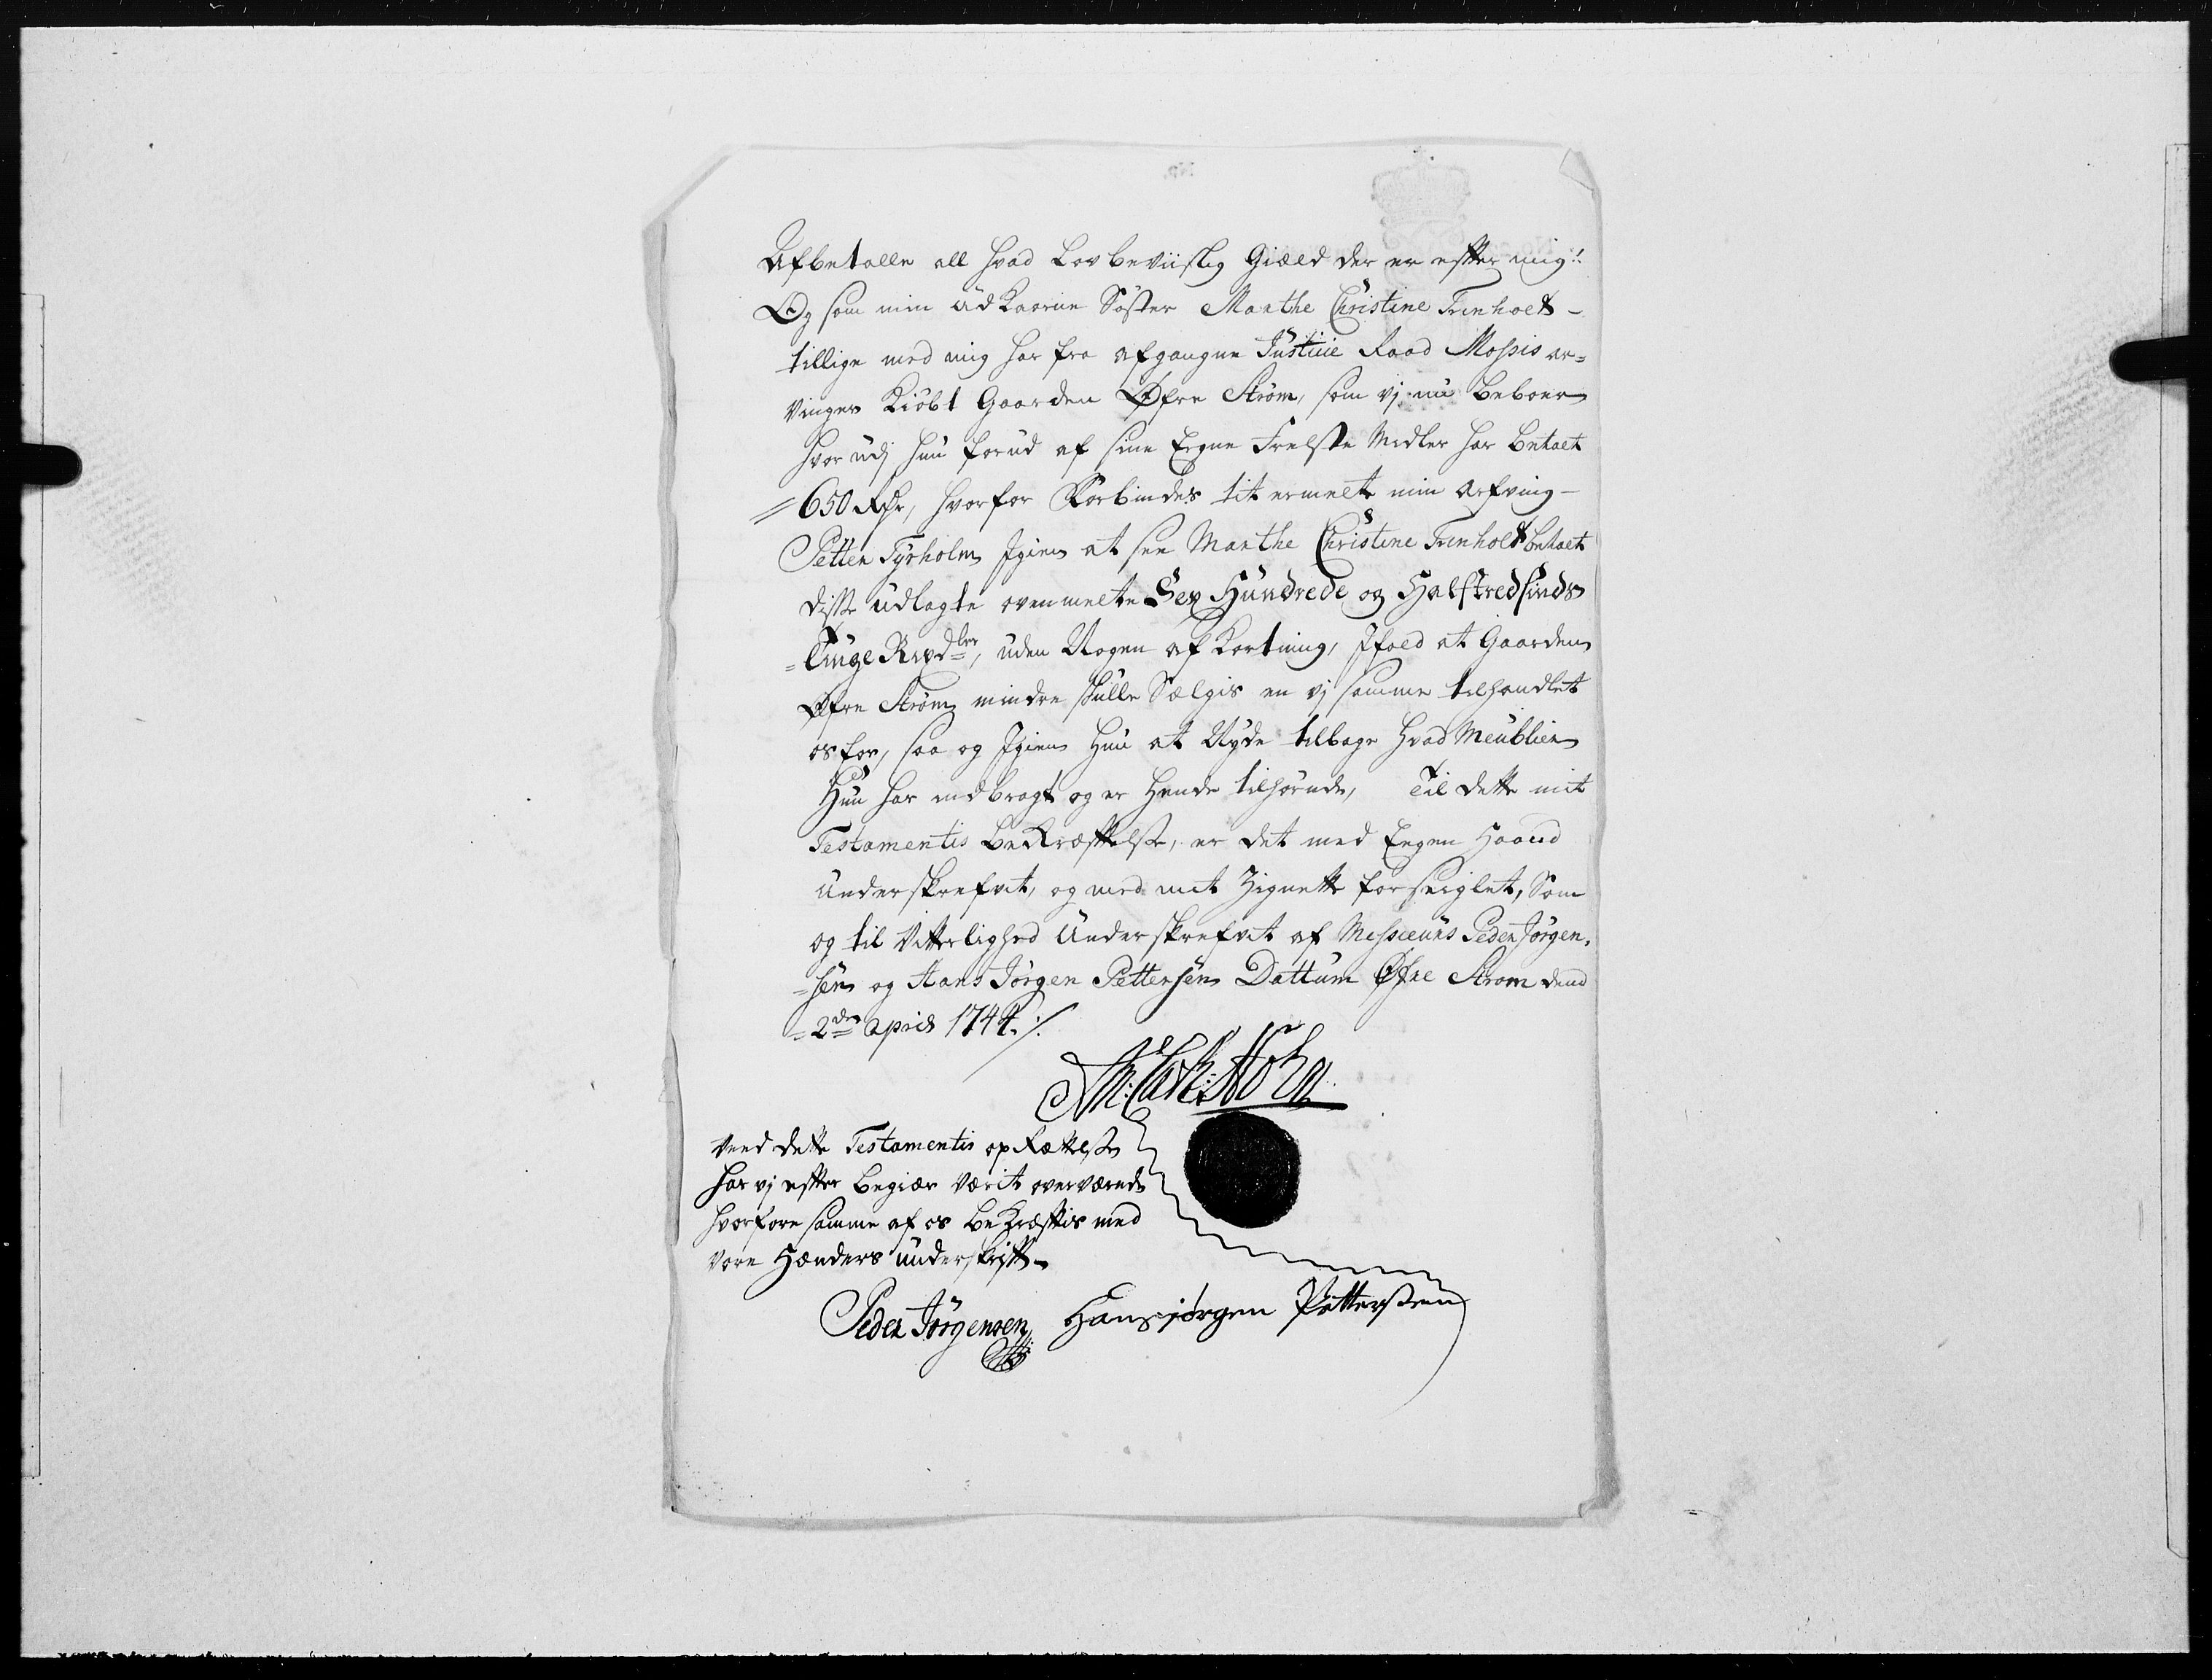 Afbetalle all hvad Lovbeviislig Giæld der er efter mig!
Og som min udkaarne Søster Marthe Christine Trinholt -
tillige med mig har fra afgangne Justitie Raad Mossis ar=
vinger Kiøbt Gaarden Øfre Strøm, som vj nu beboer
hvor udj hun forud af sine Eegne Frelste Midler har betalt
=650 Rdr, hvorfor Forbindes tit ermelte min arfving -
Petter Tyrholm Igien at see Marthe Christine Trinholt betalt
disse udlagte ovenmelte Sex Hundrede og Halftredsinds
=tiuge Rixdlr, uden Nogen af Kortning, Ifald at Gaarden
Øfre Strøm mindre skulle Sælgis en vj samme tilhandlet
os for, saa og Igien hun at Nyde tilbage hvad Meublier
Hun har indbragt og er hende tilhørende, Til dette mit
Testamentis beKræftelse, er det med Eegen Haand
Underskrefvet, og med mit Zignette forseiglet, Som
og til Vitterlighed Underskrefvet af Messieurs Peder Jørgen,
=sen og Hans Jørgen Pettersen Dattum Øfre Strøm dend
=2den April 1744 ./.
Ved dette Testamentis opRættelse
har vj efter begiær værit overværende
hvorfore samme af os beKræftis med
vore Hænders underskrift -
Peder Jørgensen Hansjørgen Pettersen